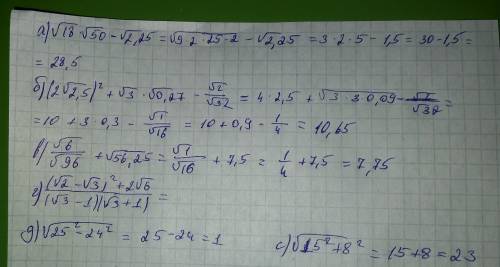 а) √18 · √50 − √2,25 = √9·2·25·2 − √2,25 = 3·2·5 − 1,5 = 30 − 1,5 =
= 28,5
б) (2√2,5)² + √3 · √0,27 − √2/√32 = 4·2,5 + √3·3·0,09 − √2/√32 =
= 10 + 3·0,3 − √1/√16 = 10 + 0,9 − 1/4 = 10,65
в) √6/√96 + √56,25 = √1/√16 + 7,5 = 1/4 + 7,5 = 7,75
г) (√2 − √3)² + 2√6/(√3 − 1)(√3 + 1) =
д) √25² − 24² = 25 − 24 = 1 с) √15² + 8² = 15 + 8 = 23